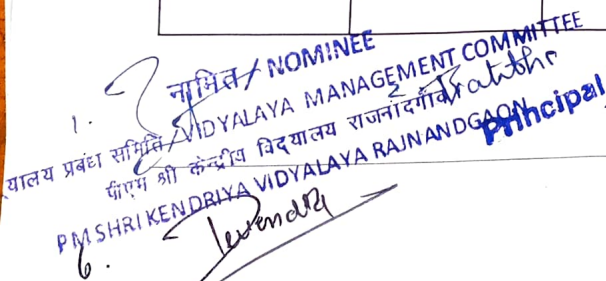 1.
नामित / NOMINEE
यालय प्रबंध समिति / VIDYALAYA MANAGEMENT COMMITTEE
पीएम श्री केन्द्रीय विद्यालय राजनांदगाँव
Principal
PM SHRI KENDRIYA VIDYALAYA RAJNANDGAON
6. Devendra